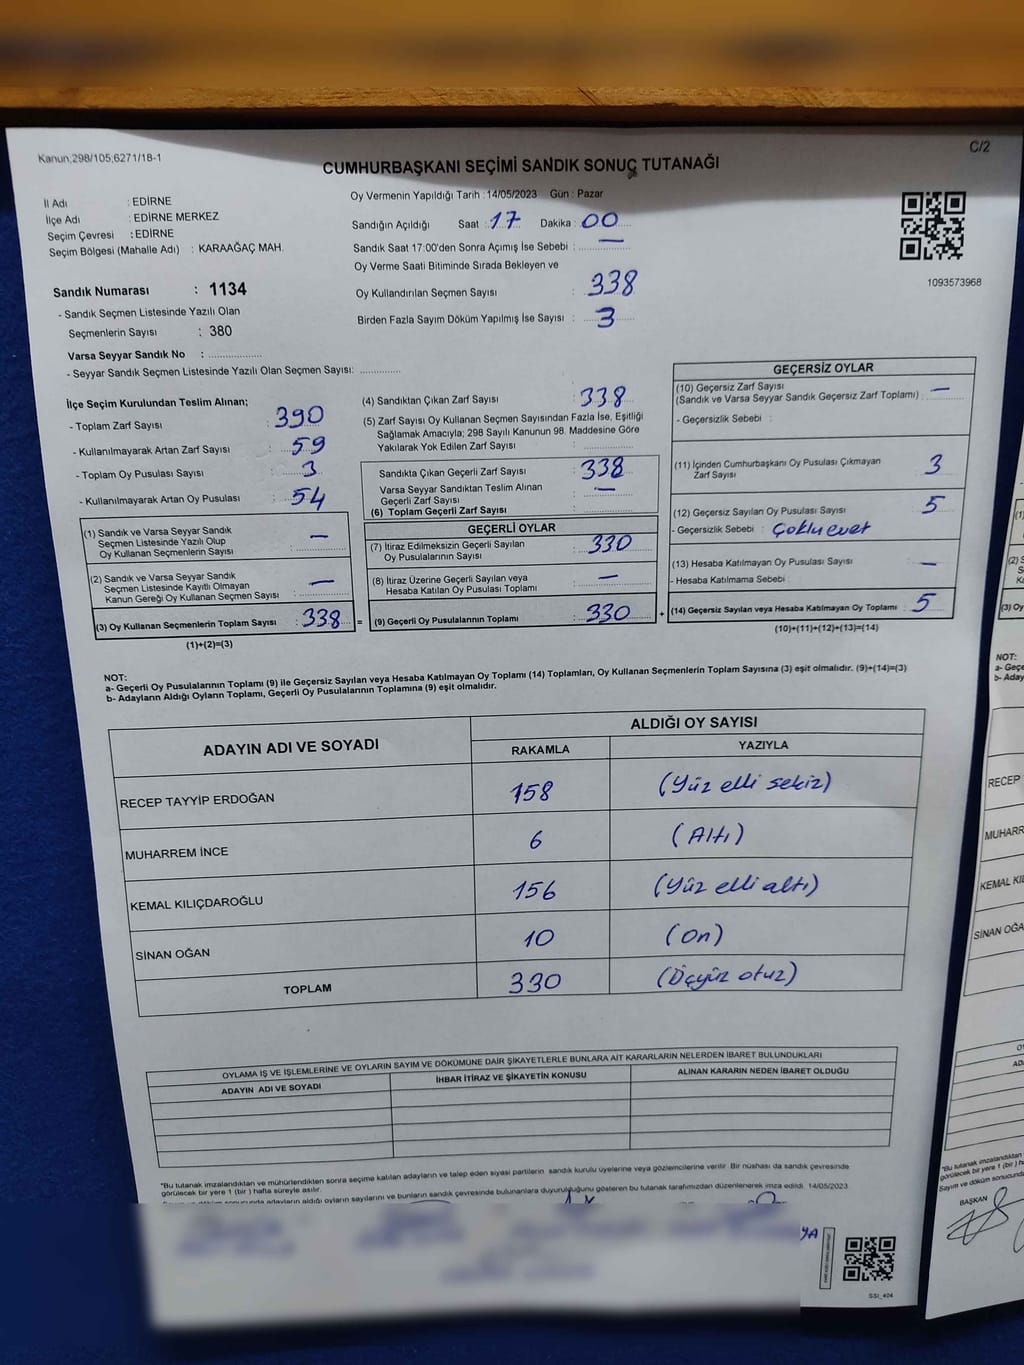 Kanun;298/105;6271/18-1
C/2
CUMHURBAŞKANI SEÇİMİ SANDIK SONUÇ TUTANAĞI
İl Adı : EDİRNE
İlçe Adı : EDİRNE MERKEZ
Seçim Çevresi : EDİRNE
Seçim Bölgesi (Mahalle Adı) : KARAAĞAÇ MAH.
Sandık Numarası : 1134
- Sandık Seçmen Listesinde Yazılı Olan
Seçmenlerin Sayısı : 380
Varsa Seyyar Sandık No : ..................
- Seyyar Sandık Seçmen Listesinde Yazılı Olan Seçmen Sayısı: .............
Oy Vermenin Yapıldığı Tarih : 14/05/2023 Gün : Pazar
Sandığın Açıldığı Saat : 17 Dakika : 00
Sandık Saat 17:00'den Sonra Açımış İse Sebebi : —
Oy Verme Saati Bitiminde Sırada Bekleyen ve
Oy Kullandırılan Seçmen Sayısı : 338
Birden Fazla Sayım Döküm Yapılmış İse Sayısı : 3
1093573968
İlçe Seçim Kurulundan Teslim Alınan;
- Toplam Zarf Sayısı : 390
- Kullanılmayarak Artan Zarf Sayısı : 59
- Toplam Oy Pusulası Sayısı : 3
- Kullanılmayarak Artan Oy Pusulası : 54
(1) Sandık ve Varsa Seyyar Sandık
Seçmen Listesinde Yazılı Olup
Oy Kullanan Seçmenlerin Sayısı : —
(2) Sandık ve Varsa Seyyar Sandık
Seçmen Listesinde Kayıtlı Olmayan
Kanun Gereği Oy Kullanan Seçmen Sayısı : —
(3) Oy Kullanan Seçmenlerin Toplam Sayısı : 338 =
(1)+(2)=(3)
(4) Sandıktan Çıkan Zarf Sayısı : 338
(5) Zarf Sayısı Oy Kullanan Seçmen Sayısından Fazla İse, Eşitliği
Sağlamak Amacıyla; 298 Sayılı Kanunun 98. Maddesine Göre
Yakılarak Yok Edilen Zarf Sayısı :
Sandıkta Çıkan Geçerli Zarf Sayısı : 338
Varsa Seyyar Sandıktan Teslim Alınan
Geçerli Zarf Sayısı : —
(6) Toplam Geçerli Zarf Sayısı :
GEÇERLİ OYLAR
(7) İtiraz Edilmeksizin Geçerli Sayılan
Oy Pusulalarının Sayısı : 330
(8) İtiraz Üzerine Geçerli Sayılan veya
Hesaba Katılan Oy Pusulası Toplamı : —
(9) Geçerli Oy Pusulalarının Toplamı : 330 +
GEÇERSİZ OYLAR
(10) Geçersiz Zarf Sayısı
(Sandık ve Varsa Seyyar Sandık Geçersiz Zarf Toplamı) : —
- Geçersizlik Sebebi :
(11) İçinden Cumhurbaşkanı Oy Pusulası Çıkmayan
Zarf Sayısı : 3
(12) Geçersiz Sayılan Oy Pusulası Sayısı : 5
- Geçersizlik Sebebi : Çoklu evet
(13) Hesaba Katılmayan Oy Pusulası Sayısı : —
- Hesaba Katılmama Sebebi :
(14) Geçersiz Sayılan veya Hesaba Katılmayan Oy Toplamı : 5
(10)+(11)+(12)+(13)=(14)
NOT:
a- Geçerli Oy Pusulalarının Toplamı (9) ile Geçersiz Sayılan veya Hesaba Katılmayan Oy Toplamı (14) Toplamları, Oy Kullanan Seçmenlerin Toplam Sayısına (3) eşit olmalıdır. (9)+(14)=(3)
b- Adayların Aldığı Oyların Toplamı, Geçerli Oy Pusulalarının Toplamına (9) eşit olmalıdır.
ADAYIN ADI VE SOYADI ALDIĞI OY SAYISI
RAKAMLA YAZIYLA
RECEP TAYYİP ERDOĞAN 158 (Yüz elli sekiz)
MUHARREM İNCE 6 (Altı)
KEMAL KILIÇDAROĞLU 156 (Yüz elli altı)
SİNAN OĞAN 10 (On)
TOPLAM 330 (Üçyüz otuz)
OYLAMA İŞ VE İŞLEMLERİNE VE OYLARIN SAYIM VE DÖKÜMÜNE DAİR ŞİKAYETLERLE BUNLARA AİT KARARLARIN NELERDEN İBARET BULUNDUKLARI
ADAYIN ADI VE SOYADI İHBAR İTİRAZ VE ŞİKAYETİN KONUSU ALINAN KARARIN NEDEN İBARET OLDUĞU
"Bu tutanak imzalandıktan ve mühürlendikten sonra seçime katılan adayların ve talep eden siyasi partilerin sandık kurulu üyelerine veya gözlemcilerine verilir. Bir nüshası da sandık çevresinde
görülecek bir yere 1 (bir) hafta süreyle asılır.
Sayım ve döküm sonucunda adayların aldığı oyların sayılarını ve bunların sandık çevresinde bulunanlara duyurulduğunu gösteren bu tutanak tarafımızdan düzenlenerek imza edildi. 14/05/2023
YA
SSI_404
NOT:
RECEP
MUHARR
KEMAL KIL
SİNAN OĞA
"Bu tutanak imzalandıktan
görülecek bir yere 1 (bir) h
Sayım ve döküm sonucund
BAŞKAN